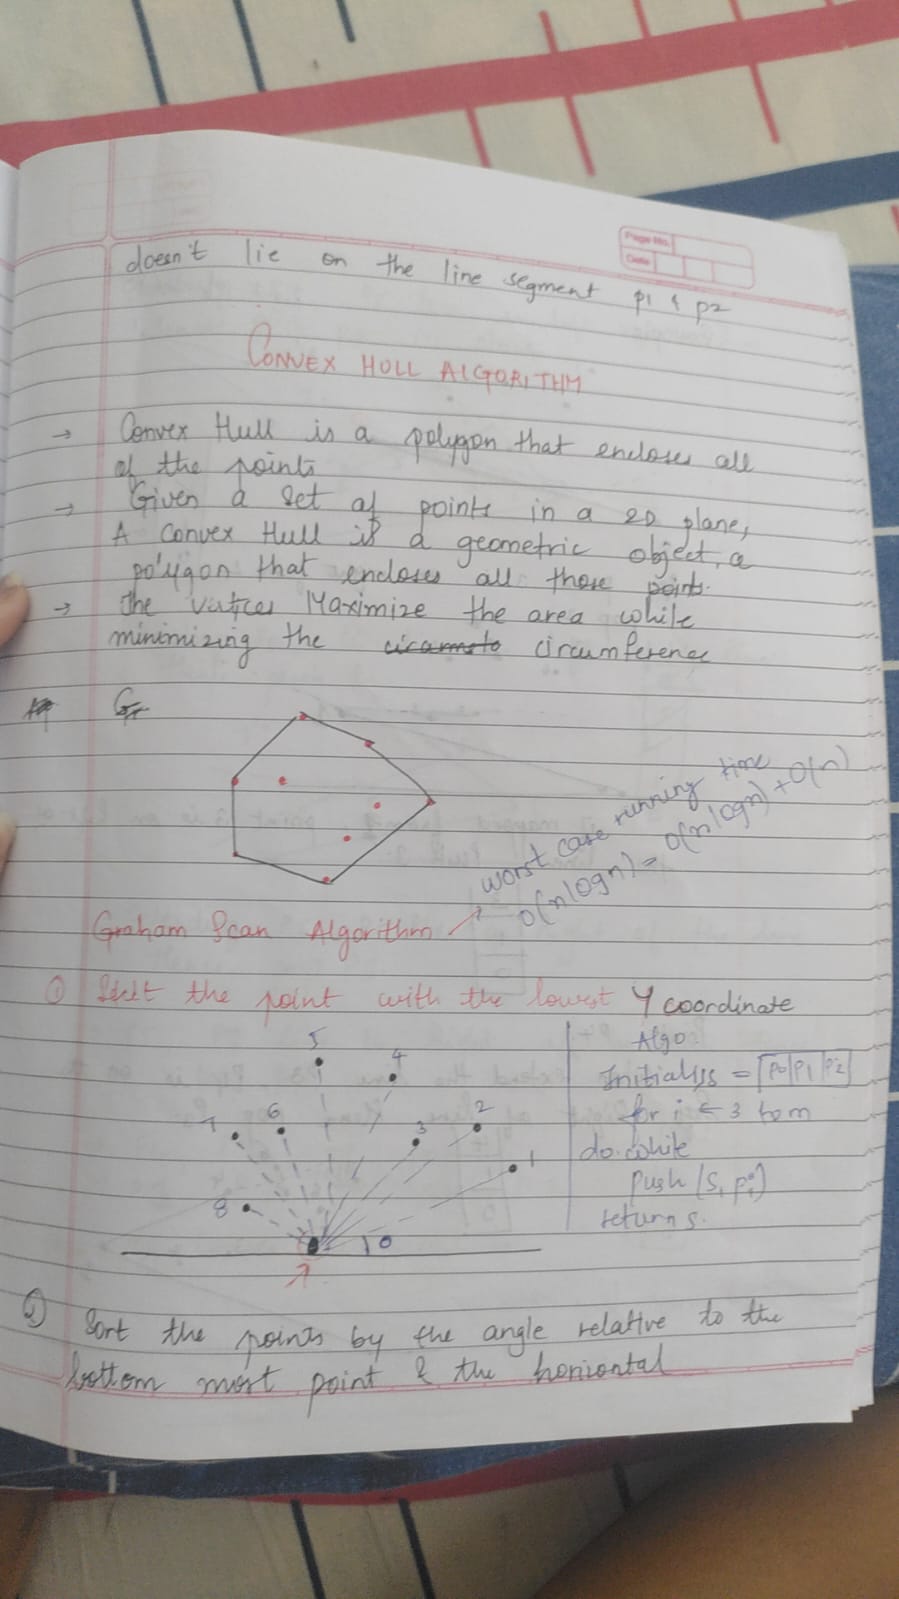 Page No.
Date
doesn't lie on the line segment p1 & p2
CONVEX HULL ALGORITHM
→ Convex Hull is a polygon that encloses all
of the points
→ Given a set of points in a 2D plane,
A Convex Hull is a geometric object, a
polygon that encloses all those points.
→ The vertices Maximize the area while
minimizing the circumference
worst case running time
O(nlogn) = O(nlogn) + O(n)
Graham Scan Algorithm
① Select the point with the lowest Y coordinate
5
4
6
7
3
2
1
8
0
Algo
Initialise = P0 P1 P2
for i ← 3 to m
do while
push (S, pi)
return s.
② Sort the points by the angle relative to the
bottom most point & the horizontal